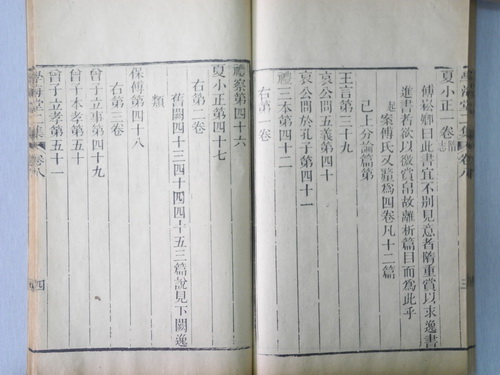 學海堂二集 卷八 三
夏小正一卷隋志
傅崧卿曰此書宜不別見意者隋重賞以求逸書
進書者欲以徼賞帛故離析篇目而爲此乎
案傅氏又題爲四卷凡十二篇
已上分論篇第
王言第三十九
哀公問五義第四十
哀公問於孔子第四十一
禮三本第四十二
右第一卷
禮察第四十六
夏小正第四十七
右第二卷
舊闕四十三四十四四十五三篇說見下闕逸
類
保傅第四十八
右第三卷
曾子立事第四十九
曾子本孝第五十
曾子立孝第五十一
學海堂二集 卷八 四